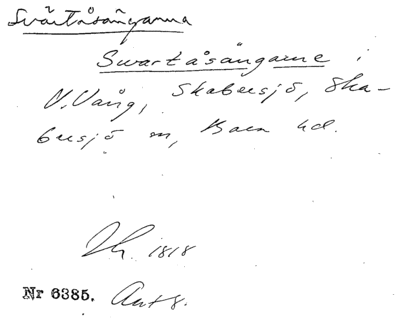 Svärtåsångarna
Swartåsångarne i
V. Vång, Skabersjö, Ska-
bersjö sn, Bara hd.
1818
Nr 6385.